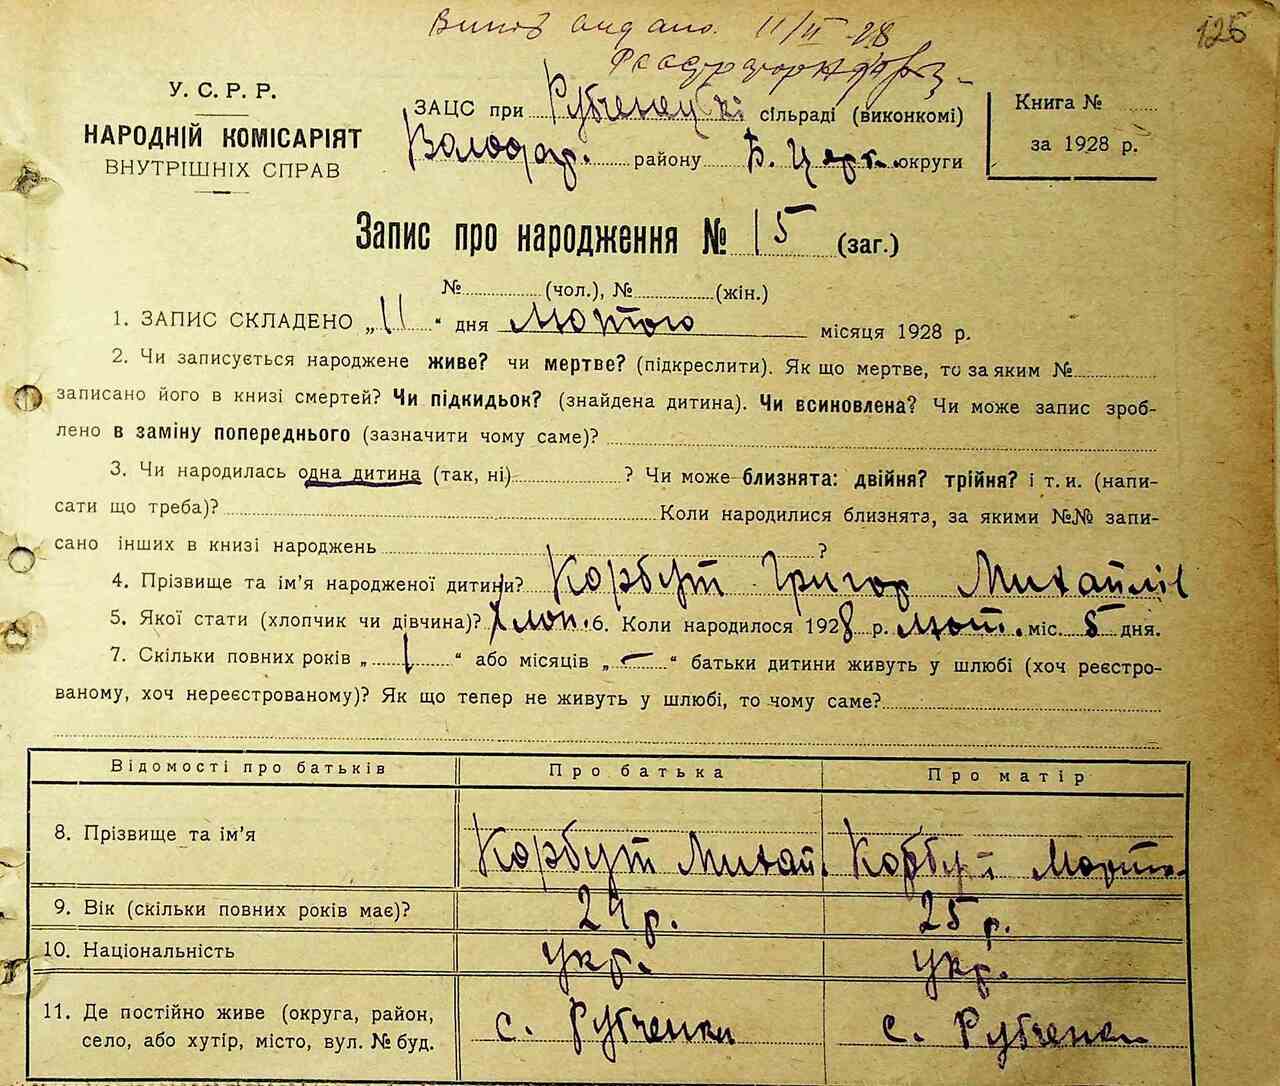 125
Випис видано. 11/II 28
У. С. Р. Р.
НАРОДНІЙ КОМІСАРІЯТ
ВНУТРІШНІХ СПРАВ
ЗАЦС при Рубченецькі сільраді (виконкомі)
Володар. району Б. Церк. округи
Книга №
за 1928 р.
Запис про народження № 15 (заг.)
№ (чол.), № (жін.)
1. ЗАПИС СКЛАДЕНО „11" дня Лютого місяця 1928 р.
2. Чи записується народжене живе? чи мертве? (підкреслити). Як що мертве, то за яким №
записано його в книзі смертей? Чи підкидьок? (знайдена дитина). Чи всиновлена? Чи може запис зроб-
лено в заміну попереднього (зазначити чому саме)?
3. Чи народилась одна дитина (так, ні) ? Чи може близнята: двійня? трійня? і т. и. (напи-
сати що треба)? Коли народилися близнята, за якими №№ запи-
сано інших в книзі народжень ?
4. Прізвище та ім'я народженої дитини? Корбут Григор Михайлів
5. Якої стати (хлопчик чи дівчина)? Хлоп. 6. Коли народилося 1928 р. лют. міс. 5 дня.
7. Скільки повних років „ 1 " або місяців „ – " батьки дитини живуть у шлюбі (хоч реєстро-
ваному, хоч нереєстрованому)? Як що тепер не живуть у шлюбі, то чому саме?
Відомості про батьків Про батька Про матір
8. Прізвище та ім'я Корбут Михай. Корбут Марта
9. Вік (скільки повних років має)? 24 р. 25 р.
10. Національність укр. укр.
11. Де постійно живе (округа, район, с. Рубченки с. Рубченки
село, або хутір, місто, вул. № буд.